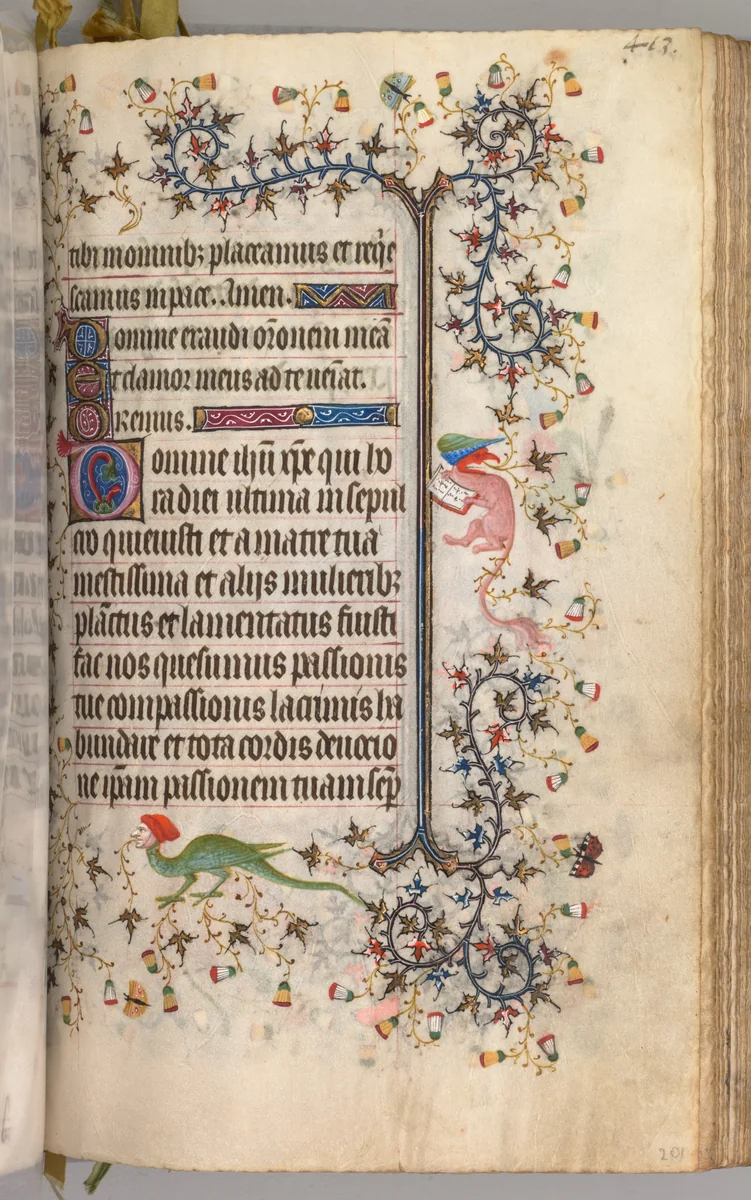 463.
tibi in omnibꝫ placeamus et reqͥe
scamus in pace. Amen.
Domine exaudi orōnem meā
Et clamor meus ad te ueīat.
Oremus.
Domine ihū xp̄e qui ho
ra diei ultima in sepul
cro quieuisti et a matre tua
mestissima et alijs mulieribꝫ
planctus et lamentatus fuisti
fac nos quesumus passionis
tue compassionis lacrimis ha
bundare et tota cordis deuocio
ne ip̄am passionem tuam sep̄
201